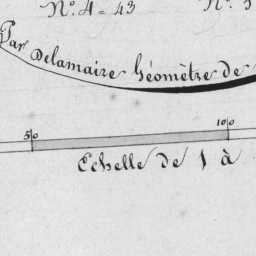 N.º 4 = 43 N.º
Par Delamaire Géomètre de
50 100
Echelle de 1 à